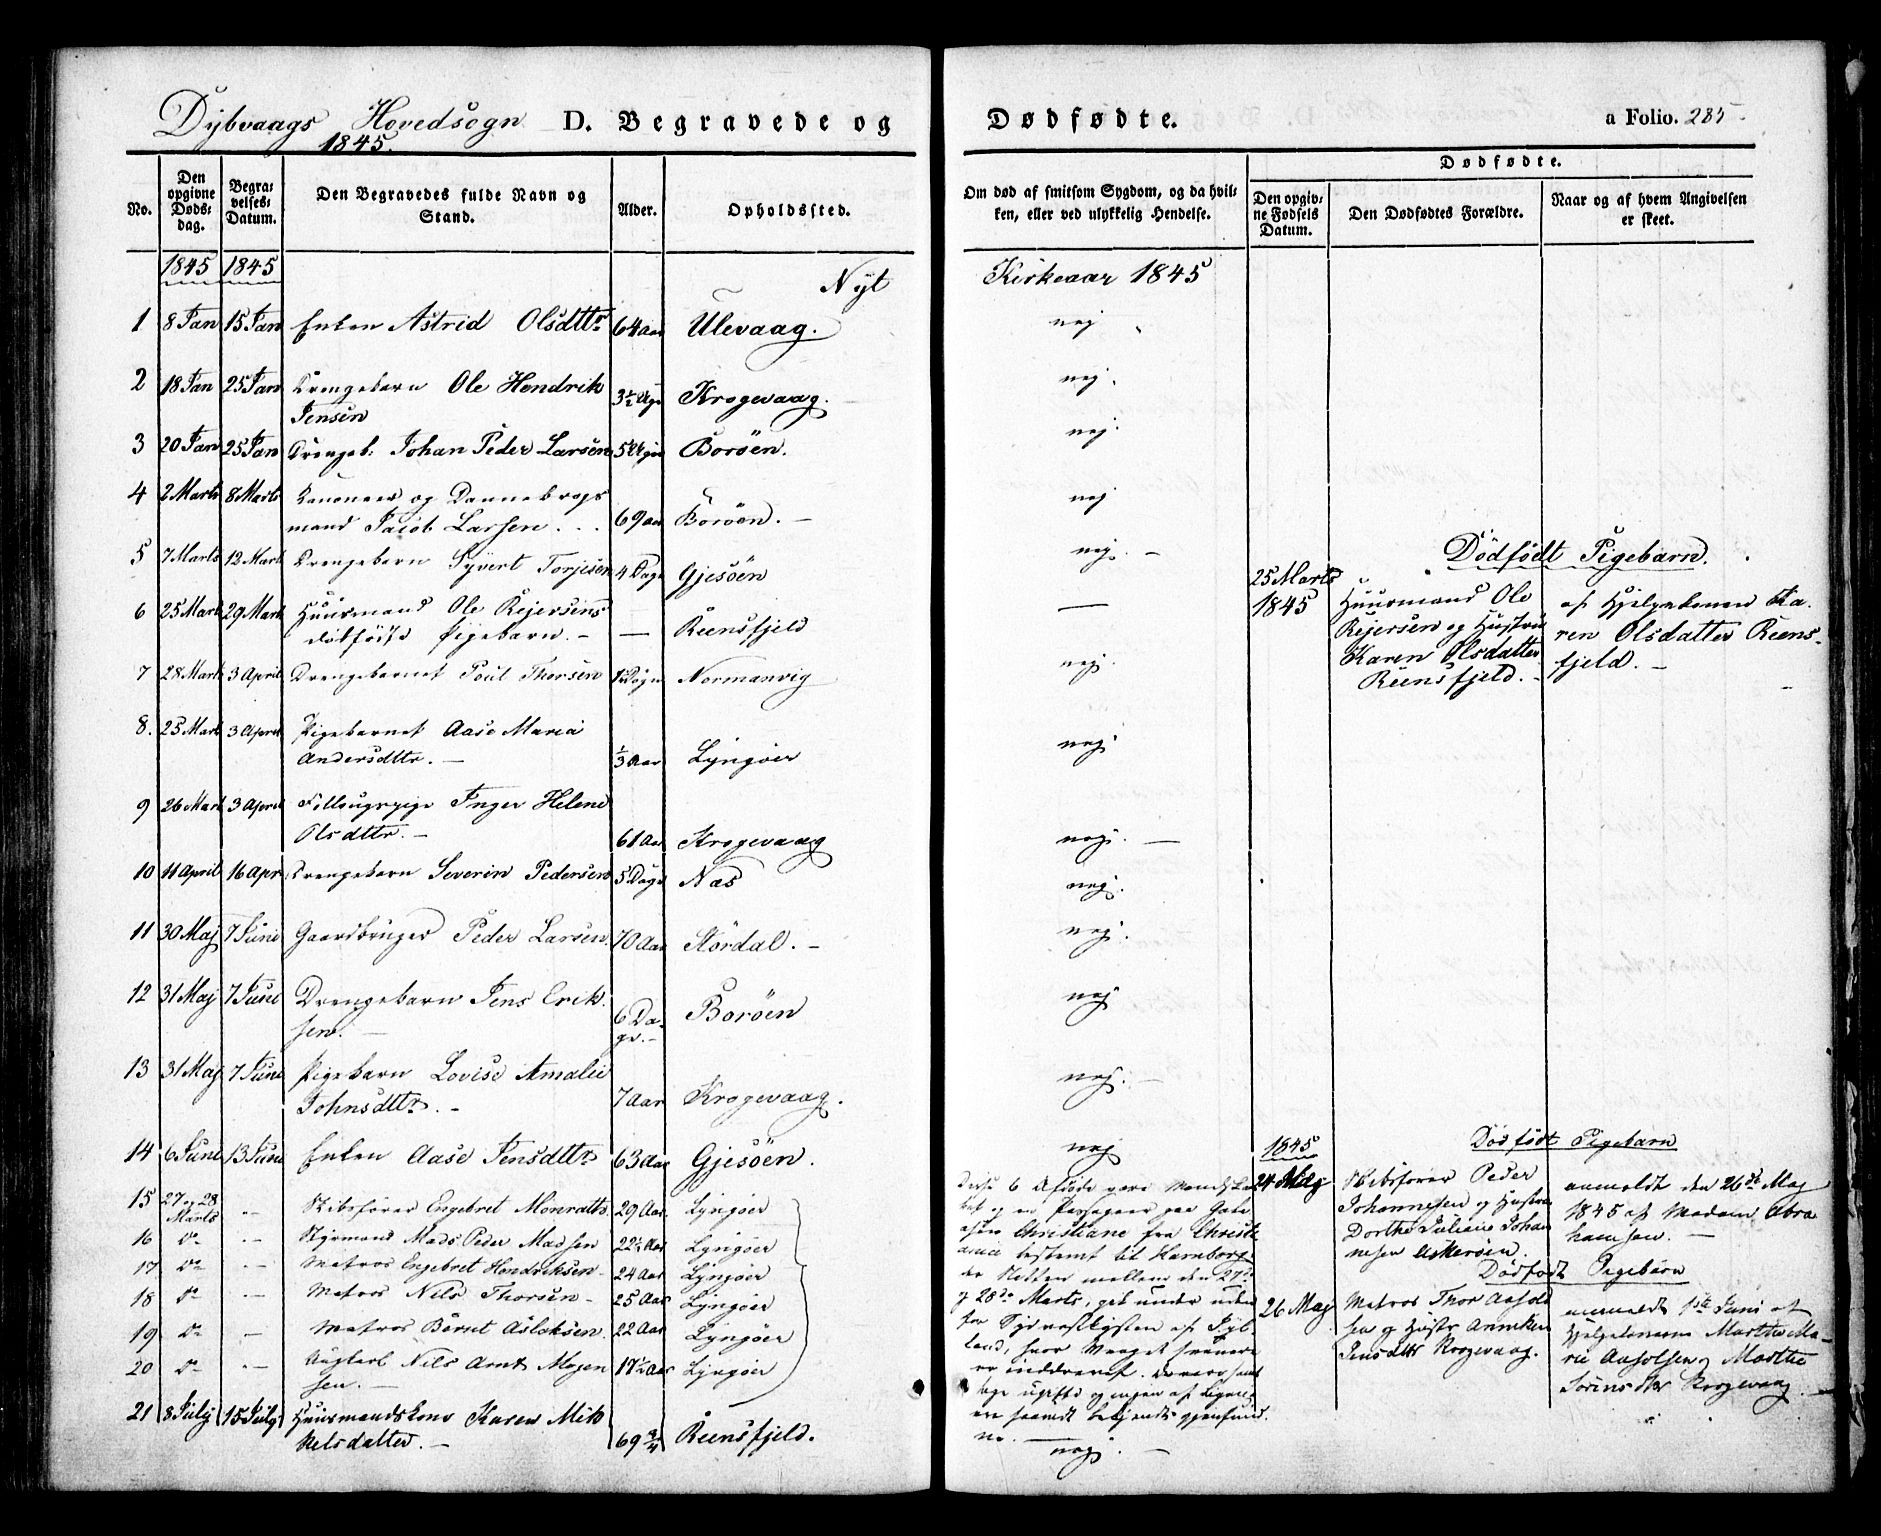 Dybvaags Hovedsogn D. Begravede og Dødfødte. a Folio. 285
1845.
No.
Den opgivne Dødsdag.
Begravelses-Datum.
Den Begravedes fulde Navn og Stand.
Alder.
Opholdssted.
Om død af smitsom Sygdom, og da hvilken, eller ved ulykkelig Hendelse.
Dødfødte.
Den opgivne Fødsels Datum.
Den Dødfødtes Forældre.
Naar og af hvem Angivelsen er skeet.
1845 1845 Nyt Kirkeaar 1845
1 8 Jan 15 Jan Enken Astrid Olsdttr 64 Aar Ulevaag. nej
2 18 Jan 25 Jan Drengebarn Ole Hendrik
Jensen 3½ Krogevaag. nej.
3 20 Jan 25 Jan Drengeb: Johan Peder Larsen 5 Borøen. nej
4 2 Marts 8 Marts Kanoneer og Dannebrogs
mand Jacob Larsen 69 Aar Borøen. nej
5 7 Marts 12 Marts Drengebarn Syvert Torjesen 4 Dage Gjesøen nej.
6 25 Marts 29 Marts Huusmand Ole Rejersens
dødfødte Pigebarn. — Reensfjeld —
7 28 Marts 3 April Drengebarnet Poul Thorsen Normanvig nej.
8. 25 Marts 3 April Pigebarnet Aase Maria
Andersdttr. ⅓ Aar Lyngøer nej
9 26 Marts 3 April Inger Helene
Olsdttr. 61 Aar Krogevaag nej.
10 11 April 16 Apr Drengebarn Severin Pedersen 5 Dage Næs nej.
11 30 Maj 7 Juni Gaardbruger Peder Larsen 70 Aar Stördal. nej.
12 31 Maj 7 Juni Drengebarn Jens Erik-
sen. 6 Da-
ge. Borøen nej
13 31 Maj 7 Juni Pigebarn Lovise Amalie
Johnsdttr. 7 Aar Krogevaag. nej.
14 6 Juni 13 Juni Enken Aase Jensdttr 63 Aar Gjesöen. nej
15 27 og 28 Marts — Skibsfører Engebret Monrath 29 Aar Lyngøer
16 Do — Styrmand Mads Peder Madsen 22½ Aar Lyngøer
17. Do — Matros Engebret Hendriksen 24 Aar Lyngøer
18 Do — Matros Nils Thorsen 25 Aar Lyngøer
19 Do — Matros Bernt Aslaksen. 22 Aar Lyngøer
20 Do — Nils Arnt Mogen
sen. 17½ Aar Lyngøer
21 8 July 15 July Huusmandskone Karen Mik
kelsdatter. 69 ¾ Reensfjeld. nej.
Disse 6 Afdøde vare Mandskab
og en Passageer paa
Christiane fra Christi
ania bestemt til Hamborg
Natten mellem den 27de
og 28de Marts, gik under uden
for Sydvestkysten af Jyl-
land, hvor Vraget senere
er inddrevet.
ugifte og ingen af Ligene
ere saavidt bekjendt gjenfund
ne.
Dødfödt Pigebarn.
25 Marts
1845
Huusmand Ole
Rejersen og Hustru
Karen Olsdatter
Reensfjeld.
af Hjelpekonen Ka-
ren Olsdatter Reens-
fjeld.
1845 Dødfödt Pigebarn
24 Maj
Skibsfører Peder
Johannesen og Hustru
Dorthe Juliane Johan
nesen Askerøen.
anmeldt den 26de Maj
1845 af Madam Abra
hamsen.
Dødfødt Pigebarn
26 Maj
Matros Thor Aasold
sen og Hustr Anniken
Jensdttr Krogevaag.
anmeldt 1ste Juni af
Hjelpekonerne Marthe Ma-
rie Aasolsen og Marthe
Sörensdttr Krogevaag.